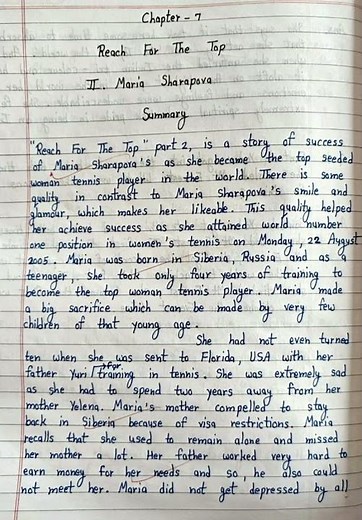 Chapter - 7
Reach For The Top
II. Maria Sharapova
Summary
"Reach For The Top" part 2, is a story of success
of Maria Sharapova's as she became the top seeded
woman tennis player in the world. There is some
quality in contrast to Maria Sharapova's smile and
glamour, which makes her likeable. This quality helped
her achieve success as she attained world number
one position in women's tennis on Monday, 22 August
2005. Maria was born in Siberia, Russia and as a
teenager she took only four years of training to
become the top woman tennis player. Maria made
a big sacrifice which can be made by very few
children of that young age.
She had not even turned
ten when she was sent to Florida, USA with her
father Yuri for training in tennis. She was extremely sad
as she had to spend two years away from her
mother Yelena. Maria's mother compelled to stay
back in Siberia because of visa restrictions. Maria
recalls that she used to remain alone and missed
her mother a lot. Her father worked very hard to
earn money for her needs and so, he also could
not meet her. Maria did not get depressed by all